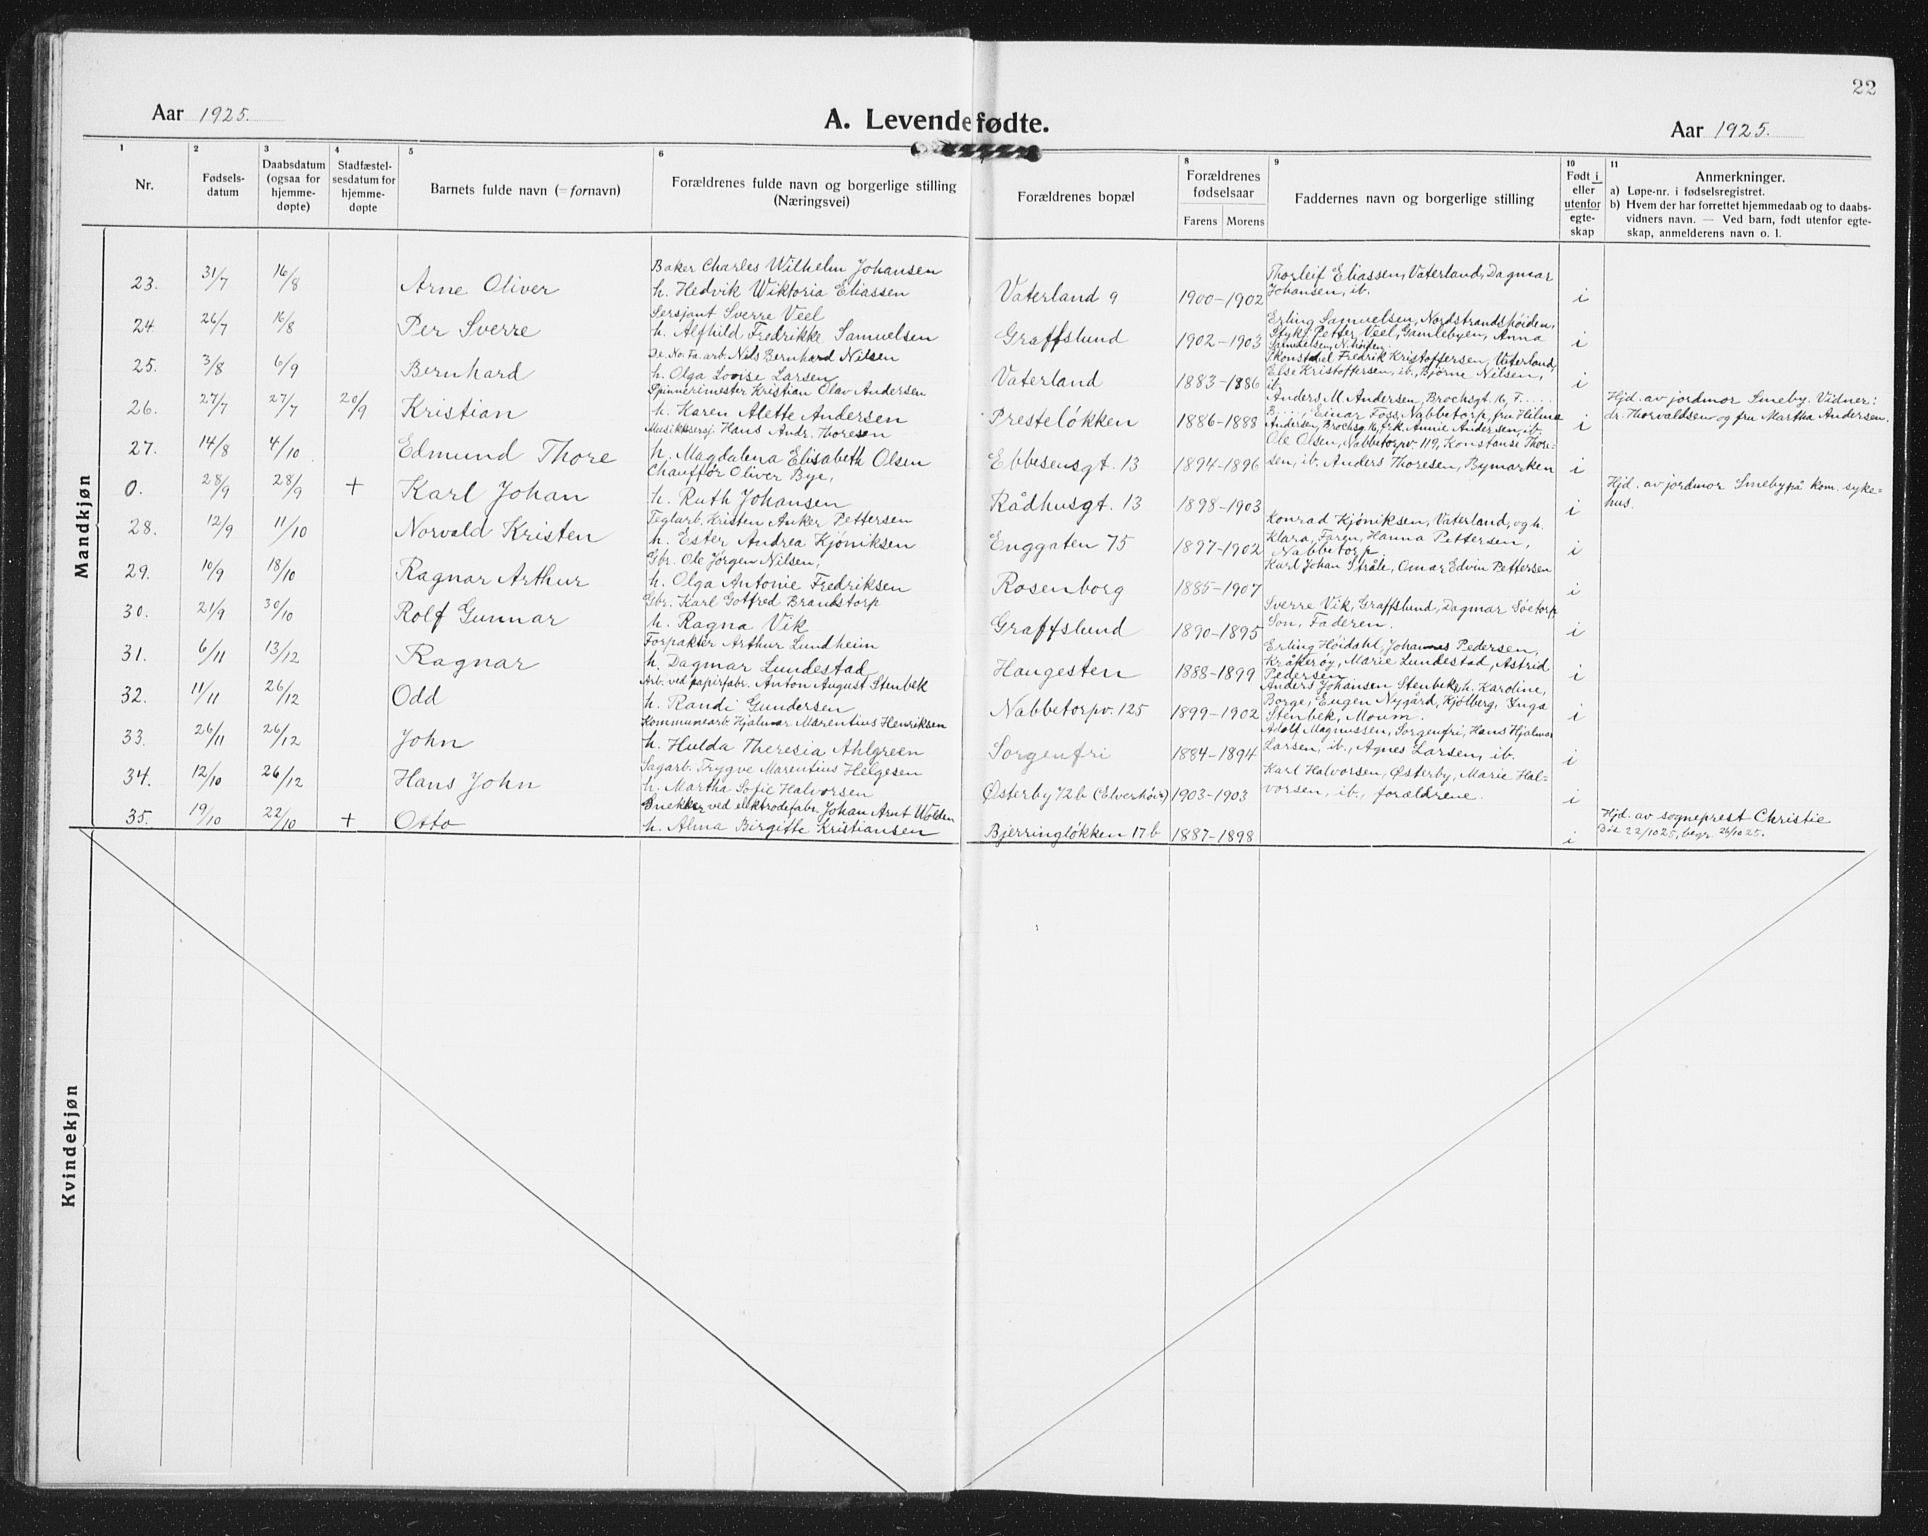 22
Aar 1925.
A. Levendefødte.
Aar 1925.
1 Nr.
2 Fødsels-datum
3 Daabsdatum (ogsaa for hjemme-døpte)
4 Stadfæstel-sesdatum for hjemme-døpte
5 Barnets fulde navn (= fornavn)
6 Forældrenes fulde navn og borgerlige stilling (Næringsvei)
Forældrenes bopæl
8 Forældrenes fødselsaar
Farens Morens
9 Faddernes navn og borgerlige stilling
10 Født i eller utenfor egte-skap
11 Anmerkninger.
a) Løpe-nr. i fødselsregistret.
b) Hvem der har forrettet hjemmedaab og to daabs-
vidners navn. — Ved barn, født utenfor egte-
skap, anmelderens navn o. l.
Mandkjøn
23. 31/7 16/8 Arne Oliver
Baker Charles Wilhelm Johansen
h. Hedvik Wiktoria Eliassen
Vaterland 9 1900-1902
Thorleif Eliassen, Vaterland, Dagmar
Johansen, ib.
i
24 26/7 16/8 Per Sverre
Sersjant Sverre Veel
h. Alfhild Fredrikke Samuelsen
Graffslund 1902-1903
Erling Samuelsen, Nordstrandshøiden,
Stykj. Petter Veel, Gamlebyen, Anna
Samuelsen, N. høiden
i
25. 3/8 6/9 Bernhard
De No. Fa. arb. Nils Bernhard Nilsen
h. Olga Lovise Larsen
Vaterland 1883-1886
Skonstabel Fredrik Kristoffersen, Vaterland,
Else Kristoffersen, ib., Bjørne Nilsen,
ib.
i
26. 27/7 27/7 20/9 Kristian
Spinnerimester Kristian Olav Andersen
h. Karen Alette Andersen
Presteløkken 1886-1888
Anders M. Andersen, Brochsgt. 16, F.....
B....., Einar Foss, Nabbetorp, fru Hilma
Andersen, Brochsg. 16, frk. Annie Andersen, ib.
i
Hjd. av jordmor Smeby. Vidner:
dr. Thorvaldsen og fru Martha Andersen.
27. 14/8 4/10 Edmund Thore
Musikksersj. Hans Andr. Thoresen
h. Magdalena Elisabeth Olsen
Ebbesensgt. 13 1894-1896
Ole Olsen, Nabbetorpv 119, Konstanse Thore-
sen, ib. Anders Thoresen, Bymarken
i
0. 28/9 28/9 + Karl Johan
Chauffør Oliver Bye,
h. Ruth Johansen
Rådhusgt. 13 1898-1903
i
Hjd. av jordmor Smeby på kom. syke=
hus.
28. 12/9 11/10 Norvald Kristen
Teglarb. Kristen Anker Pettersen
h. Ester Andrea Kjøniksen
Enggaten 75 1897-1902
Konrad Kjøniksen, Vaterland, og h.
Klara, Faren, Hanna Pettersen,
Nabbetorp.
i
29. 10/9 18/10 Ragnar Arthur
Gbr. Ole Jørgen Nilsen,
h. Olga Antonie Fredriksen
Rosenborg 1885-1907
Karl Johan Stråle, Omar Edvin Pettersen
i
30. 21/9 30/10 Rolf Gunnar
Gbr. Karl Gotfred Brandstorp
h. Ragna Vik
Graffslund 1890-1895
Sverre Vik, Graffslund, Dagmar Søetorp
Son, Faderen.
i
31. 6/11 13/12 Ragnar
Forpakter Arthur Lundheim
h. Dagmar Lundestad
Haugesten 1888-1899
Erling Høidahl, Johannes Pedersen,
Kråkerøy, Marie Lundestad, Astrid
Pedersen
i
32. 11/11 26/12 Odd
Arb. ved papirfabr. Anton August Stenbek
h. Randi Gundersen
Nabbetorpv. 125 1899-1902
Anders Johansen Stenbek, h. Karoline,
Borge, Eugen Nygård, Kjølberg, Inga
Stenbek, Moum.
i
33. 26/11 26/12 John
Kommunearb. Hjalmar Marentius Henriksen
h. Hulda Theresia Ahlgreen
Sorgenfri 1884-1894
Adolf Magnussen, Sorgenfri, Hans Hjalmar
Larsen, ib., Agnes Larsen, ib.
i
34. 12/10 26/12 Hans John
Sagarb. Trygve Marentius Helgesen
h. Martha Sofie Halvorsen
Østerby 72 b (Elverhøi) 1903-1903
Karl Halvorsen, Østerby, Marie Hal=
vorsen, ib., forældrene.
i
35. 19/10 22/10 + Otto
Snekker ved elektrodefabr. Johan Arnt Wolden
h. Alma Birgitte Kristiansen
Bjerringløkken 17 b 1887-1898
i
Hjd. av sogneprest Christie
Død 22/10 25, begr. 26/10 25.
Kvindekjøn